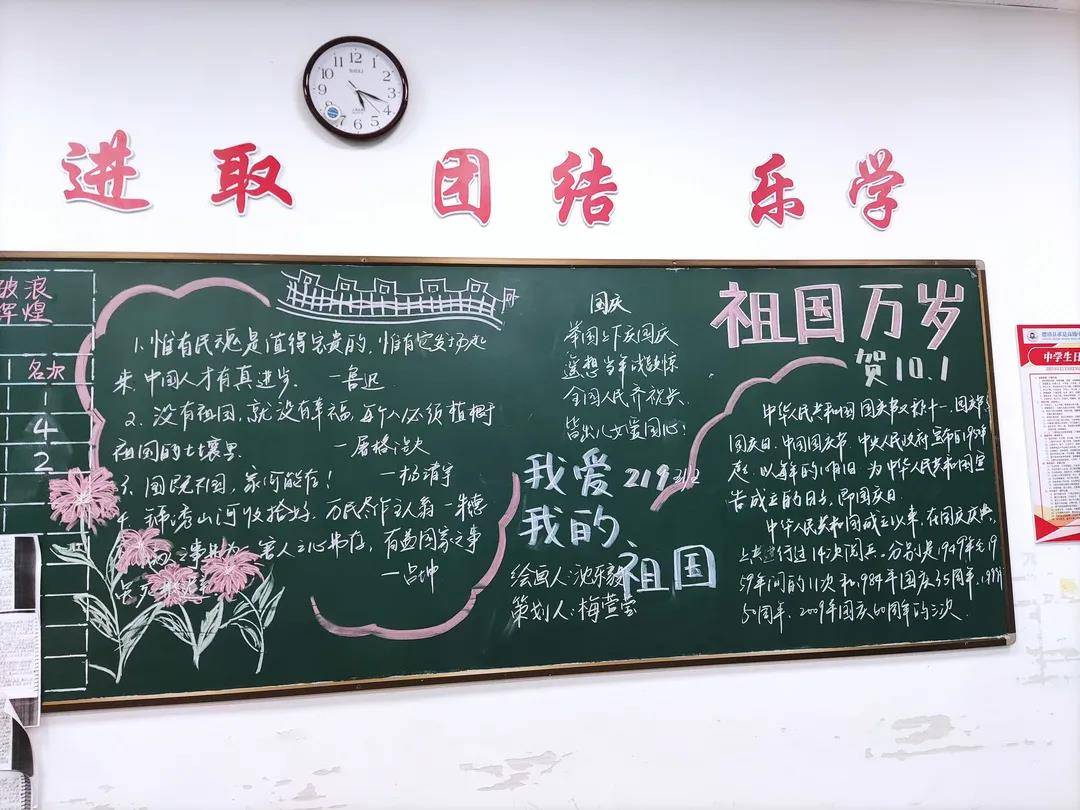 进取 团结 乐学
12 1 2 3 4 5 6 7 8 9 10 11
破浪
辉煌
名次
1
4
2
1
1.惟有民魂是值得宝贵的,惟有它发扬起
来,中国人才有真进步。—鲁迅
2、没有祖国,就没有幸福。每个人必须植根于
祖国的土壤里。
—屠格涅夫
3、国既不国,家何能存!—杨靖宇
4、锦绣山河收拾好,万民尽作主人翁—朱德
害人之心弗存,有益国家之事
—吕坤
国庆
举国上下庆国庆
遥想当年战敌惊
全国人民齐祝兴
皆出儿女爱国心!
我爱
219
我的
祖国
绘画人:沈乐毅
策划人:梅萱莹
祖国万岁
贺10.1
中华人民共和国国庆节又称十一、国庆节、
国庆日、中国国庆节 中央人民政府宣布自1950年
起,以每年的10月1日 为中华人民共和国宣
告成立的日子,即国庆日
中华人民共和国成立以来,在国庆庆典
上共进行过14次阅兵。分别是1949年至19
59年间的11次和1984年国庆35周年、1999年
50周年、2009年国庆60周年的三次
中学生日